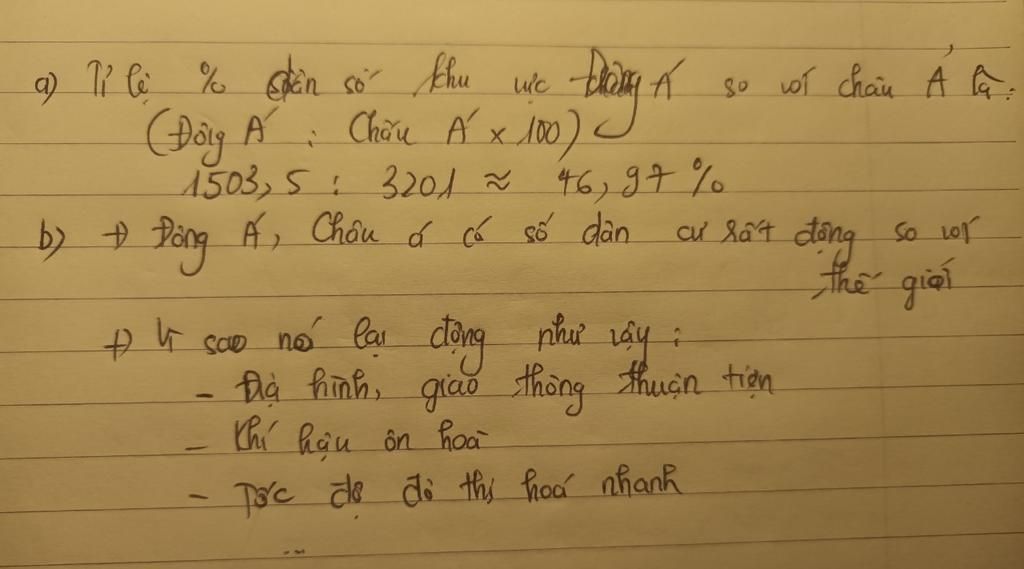 a) Tỉ lệ % dân số khu vực Đông Á so với châu Á là:
(Đông Á : Châu Á x 100)
1503,5 : 3201 ≈ 46,97 %
b) +) Đông Á, Châu á có số dân cư rất động so với
thế giới
+) Vì sao nó lại động như vậy :
- Địa hình, giao thông thuận tiện
- Khí hậu ôn hoà
- Tốc độ đô thị hoá nhanh
...